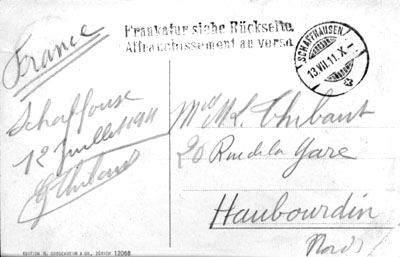 France
Frankatur siehe Rückseite.
Affranchissement au verso
SCHAFFHAUSEN
13.VII.11.X-
Schaffouse
12 Juillet 1911
Thibaut
Mlle M.L. Thibaut
20 Rue de la Gare
Haubourdin
Nord
12068